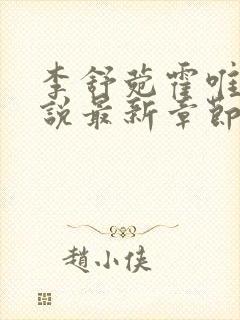 李舒菀霍唯
說最新章節
趙小俠